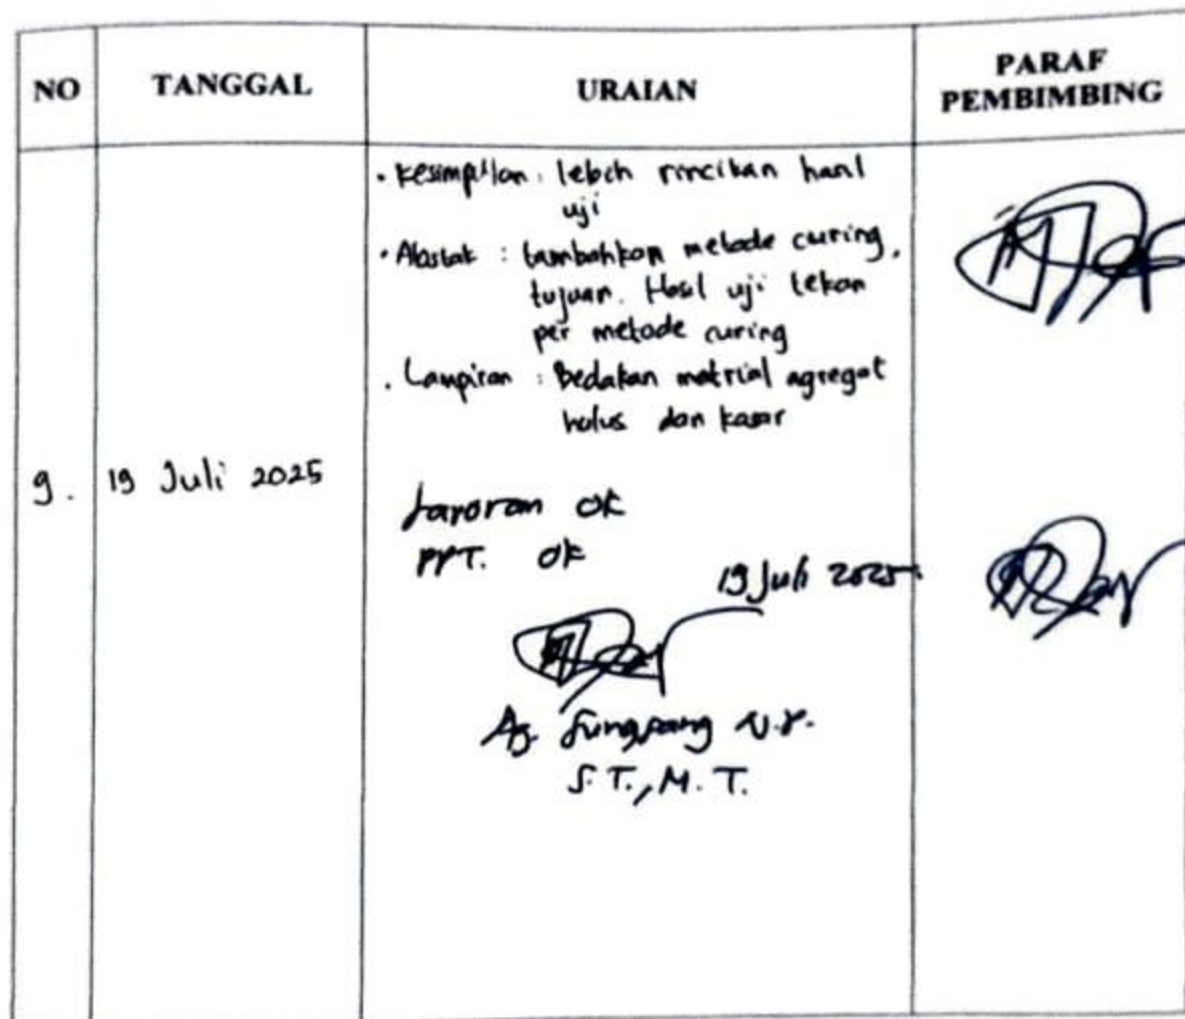 NO TANGGAL URAIAN PARAF PEMBIMBING
• Kesimpulan : lebih rincikan hasil
uji
• Abstrak : tambahkan metode curing,
tujuan. Hasil uji tekan
per metode curing
• Lampiran : Bedakan matrial agregat
halus dan kasar
9. 19 Juli 2025
Laporan OK
PPT. OK
19 Juli 2025
S.T., M.T.